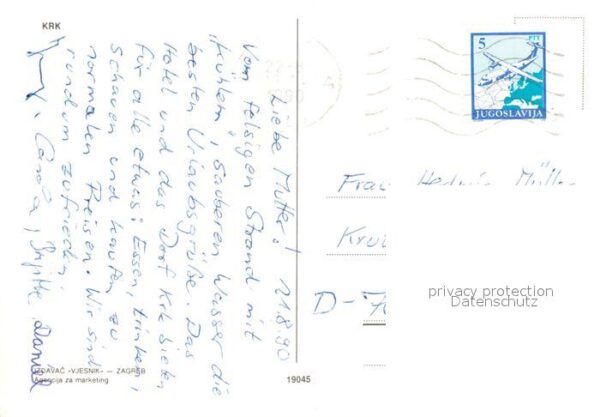 KRK
21.8.90
Liebe Mutter!
Vom felsigen Strand mit
"kühlem", sauberen Wasser die
besten Urlaubsgrüße. Das
Hotel und das Dorf Krk bieten
für alle etwas: Essen, trinken,
schauen und kaufen zu
normalen Preisen. Wir sind
rundum zufrieden!
Carola, Brigitte Daniel
IZDAVAČ »VJESNIK« — ZAGREB
Agencija za marketing
19045
22-8
1990
5 PTT
JUGOSLAVIJA
Frau Hedwig Müller
D-
privacy protection
Datenschutz